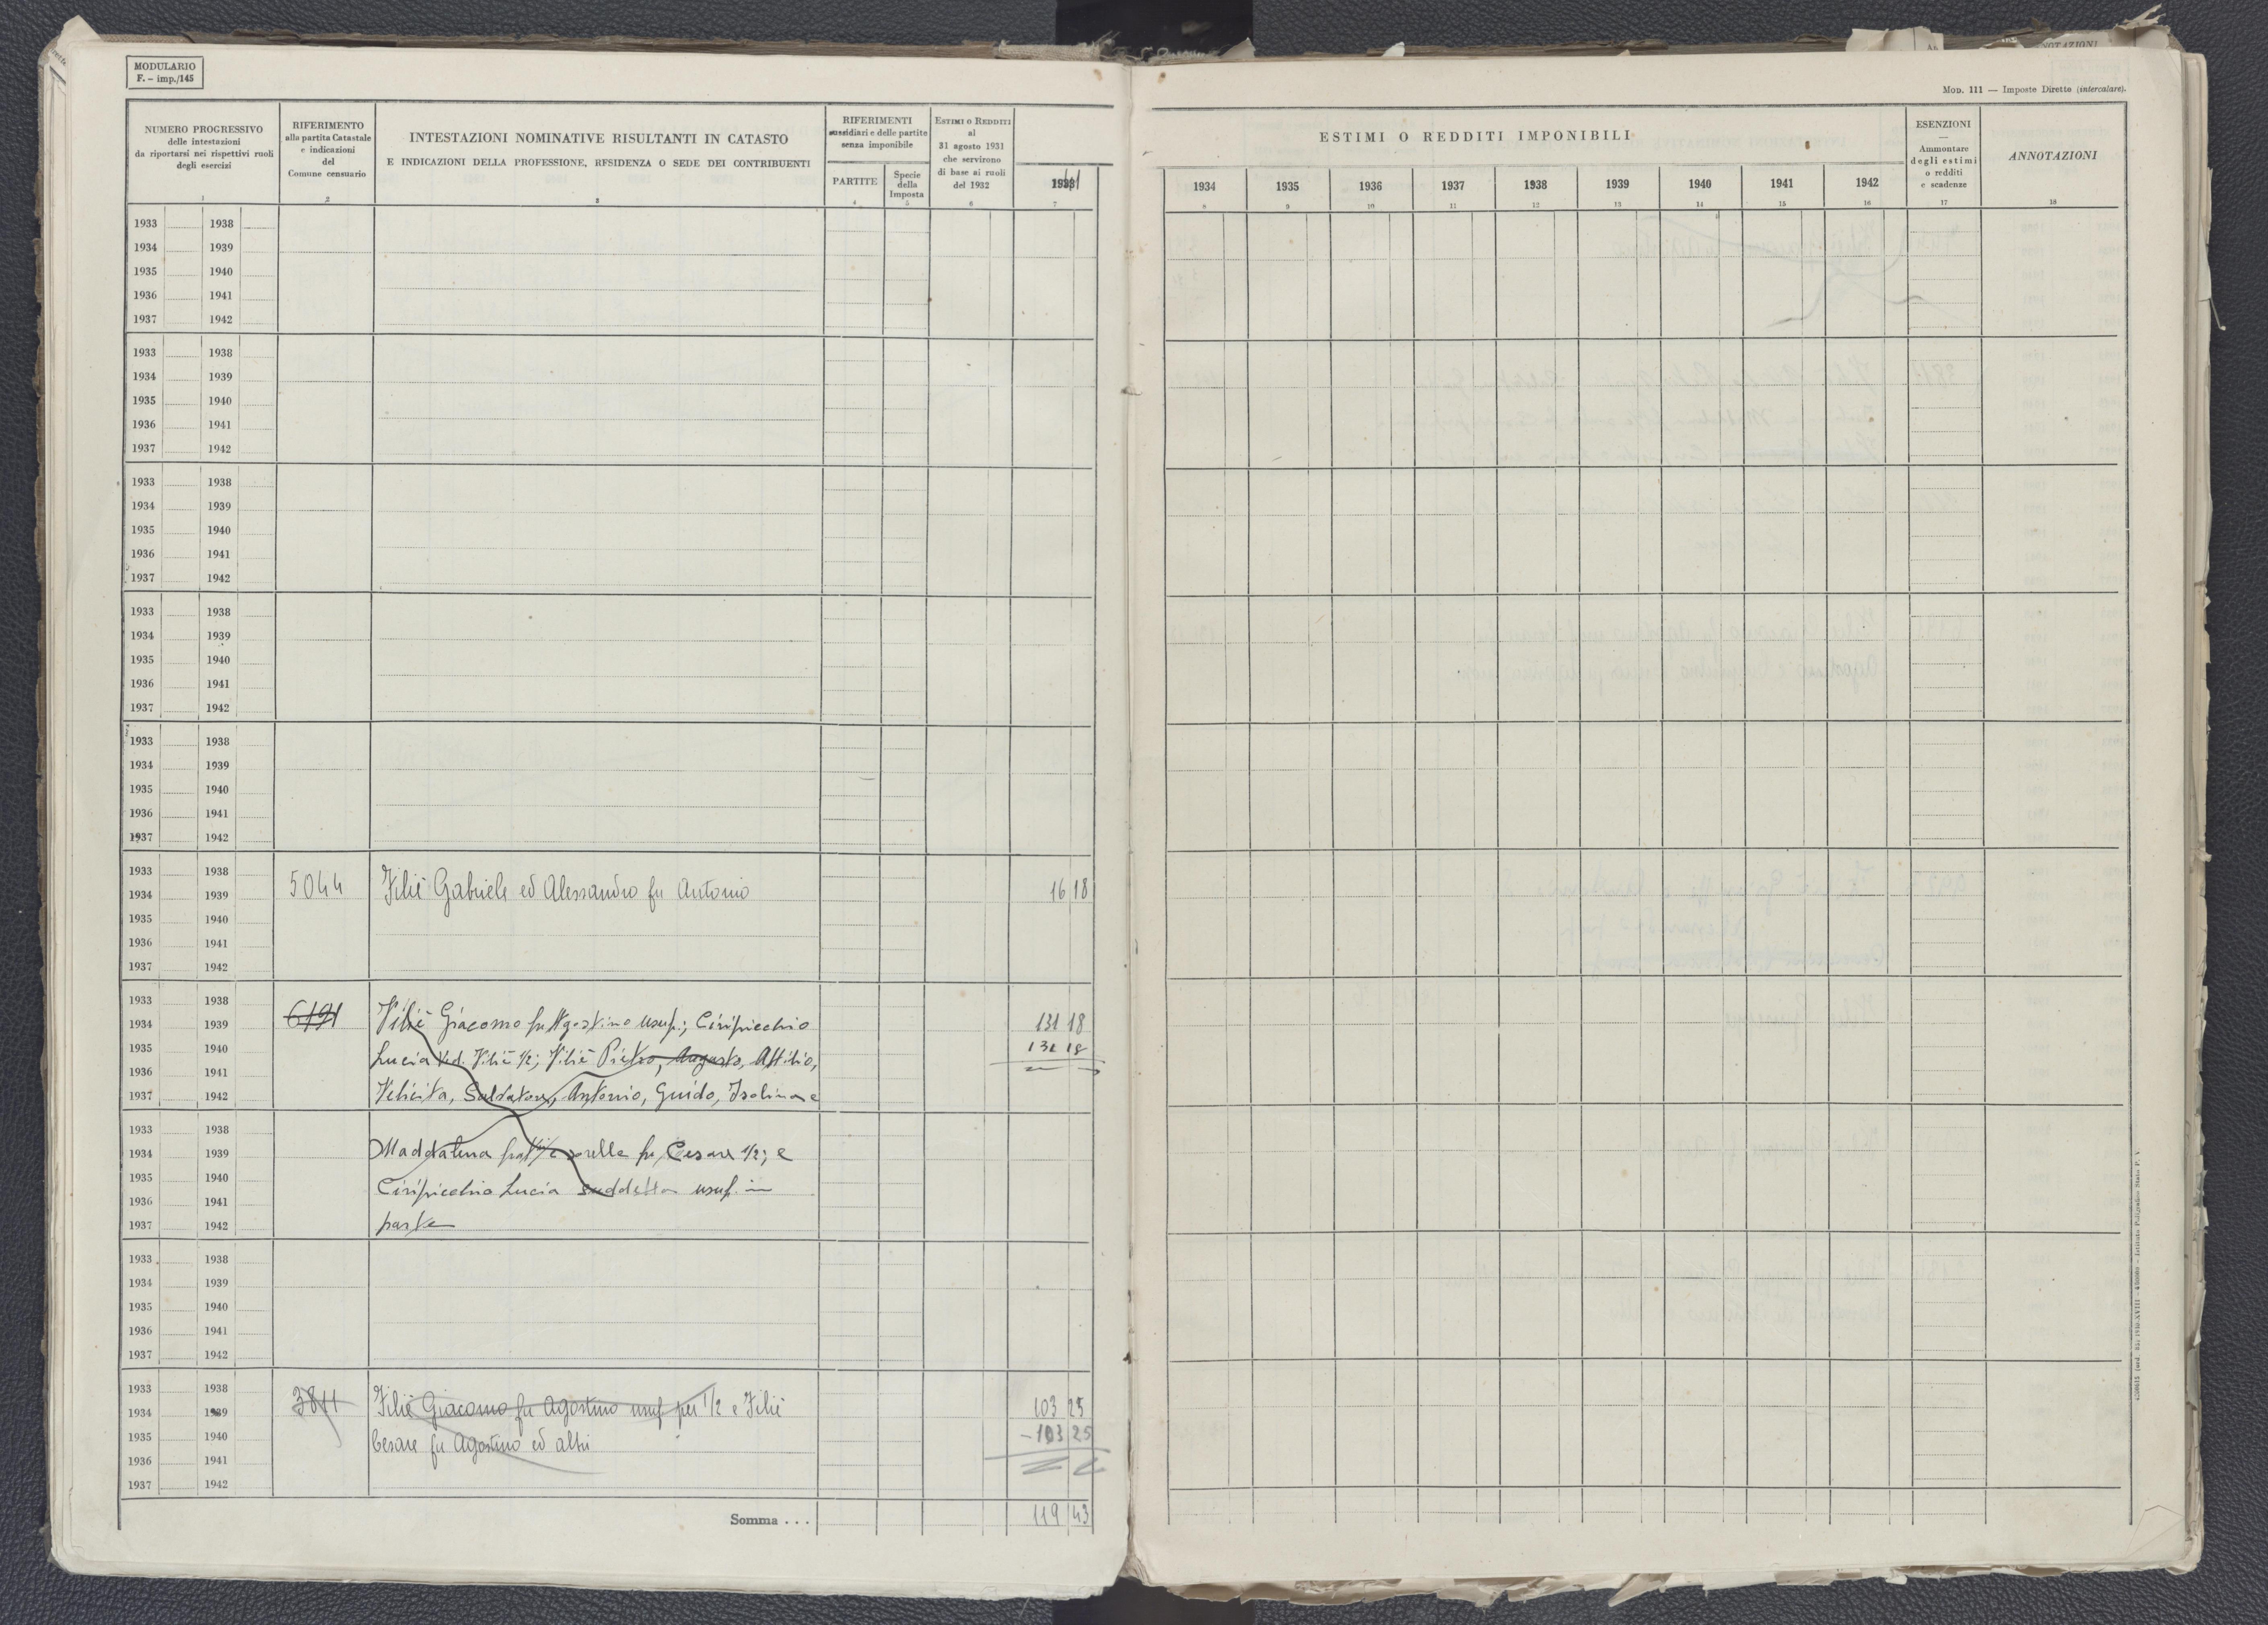 MODULARIO
F. – imp./145
NUMERO PROGRESSIVO
delle intestazioni
da riportarsi nei rispettivi ruoli
degli esercizi
1
RIFERIMENTO
alla partita Catastale
e indicazioni
del
Comune censuario
2
INTESTAZIONI NOMINATIVE RISULTANTI IN CATASTO
E INDICAZIONI DELLA PROFESSIONE, RESIDENZA O SEDE DEI CONTRIBUENTI
3
RIFERIMENTI
sussidiari e delle partite
senza imponibile
PARTITE
4
Specie
della
Imposta
5
ESTIMI O REDDITI
al
31 agosto 1931
che servirono
di base ai ruoli
del 1932
6
7
1933 1938
1934 1939
1935 1940
1936 1941
1937 1942
1933 1938
1934 1939
1935 1940
1936 1941
1937 1942
1933 1938
1934 1939
1935 1940
1936 1941
1937 1942
1933 1938
1934 1939
1935 1940
1936 1941
1937 1942
1933 1938
1934 1939
1935 1940
1936 1941
1937 1942
1933 1938
1934 1939 5044 Filiè Gabriele ed Alessandro fu Antonio 16 18
1935 1940
1936 1941
1937 1942
1933 1938
1934 1939 6191 Filiè Giacomo fu Agostino usuf.; Ciripicchio 131 18
1935 1940 Lucia ved. Filiè 1/2; Filiè Pietro, Augusto, Attilio, 131 18
1936 1941
1937 1942 Felicita, Salvatore, Antonio, Guido, Isolina e
1933 1938
1934 1939 Maddalena fratelli e sorelle fu Cesare 1/2; e
1935 1940 Ciripicchio Lucia suddetta usuf. in
1936 1941
1937 1942 parte
1933 1938
1934 1939
1935 1940
1936 1941
1937 1942
1933 1938
1934 1939 3811 Filiè Giacomo fu Agostino usuf. per 1/2 e Filiè 103 25
1935 1940 Cesare fu Agostino ed altri – 103 25
1936 1941
1937 1942
Somma . . . 119 43
MOD. 111 — Imposte Dirette (intercalare).
ESTIMI O REDDITI IMPONIBILI
1934 1935 1936 1937 1938 1939 1940 1941 1942
8 9 10 11 12 13 14 15 16
ESENZIONI
—
Ammontare
degli estimi
o redditi
e scadenze
17
ANNOTAZIONI
18